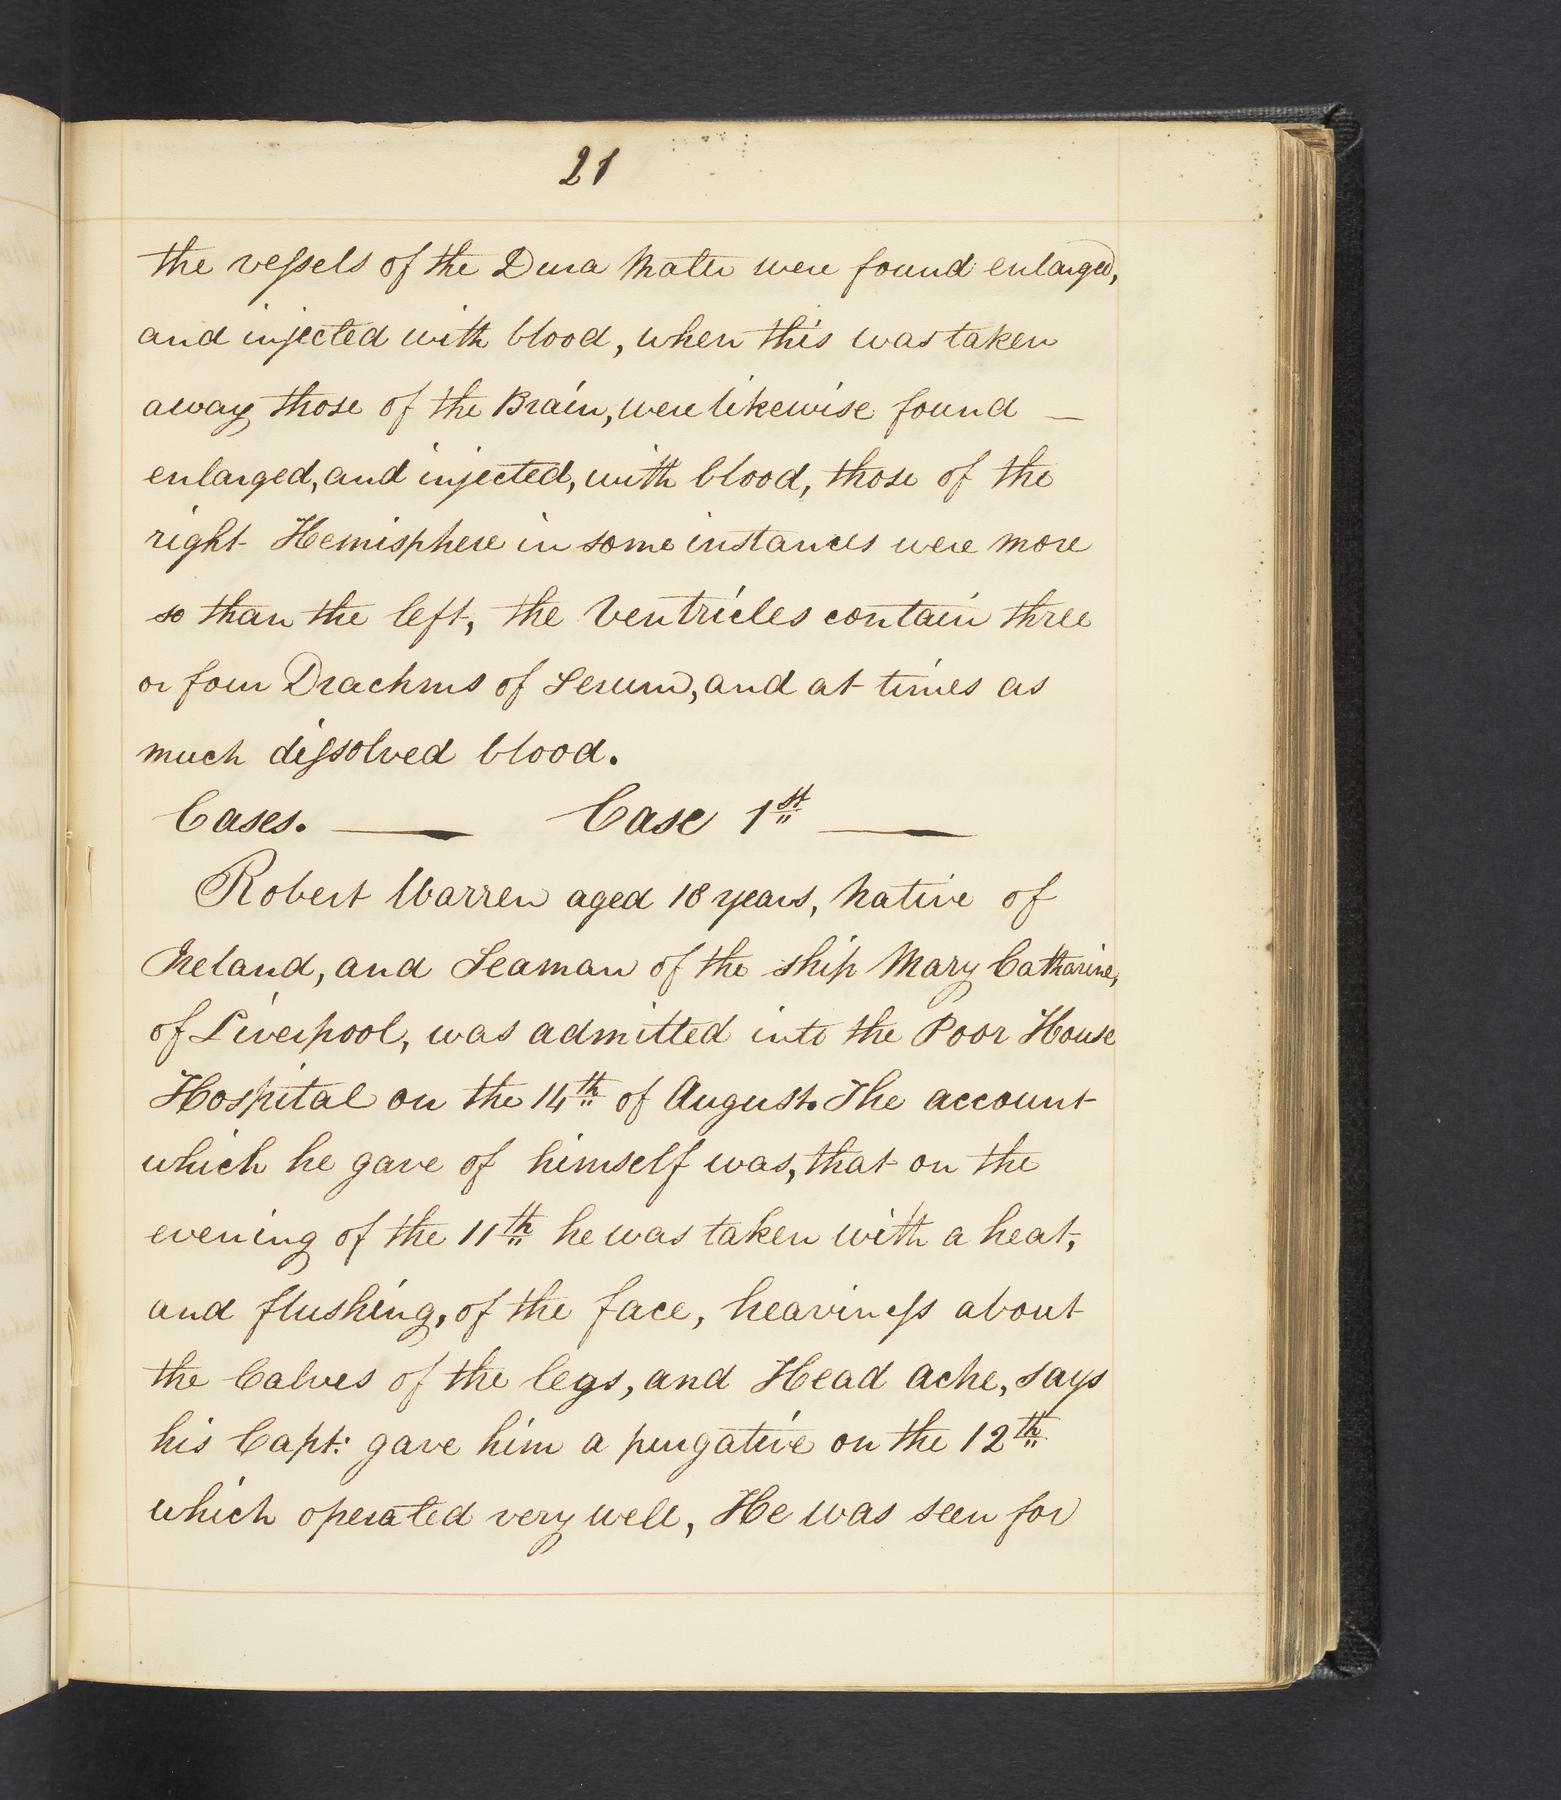 21
the vessels of the Dura Mater were found enlarged,
and injected with blood, when this was taken
away those of the Brain, were likewise found —
enlarged, and injected, with blood, those of the
right Hemisphere in some instances were more
so than the left, the Ventricles contain three
or four Drachms of Serum, and at times as
much dissolved blood.
Cases. — Case 1st —
Robert Warren aged 18 years, Native of
Ireland, and Seaman of the ship Mary Catharine,
of Liverpool, was admitted into the Poor House
Hospital on the 14th of August. The account
which he gave of himself was, that on the
evening of the 11th he was taken with a heat,
and flushing, of the face, heaviness about
the Calves of the legs, and Head ache, says
his Capt: gave him a purgative on the 12th
which operated very well, He was seen for